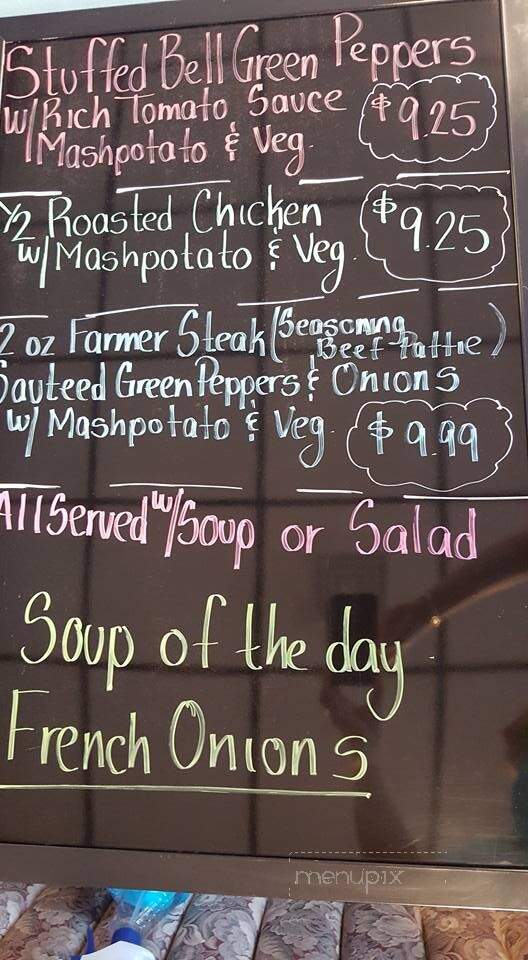 Stuffed Bell Green Peppers
w/Rich Tomato Sauce
Mashpotato & Veg.
$9.25
1/2 Roasted Chicken
w/ Mashpotato & Veg.
$9.25
2 oz Farmer Steak (Seasonning
Beef Pattie)
Sauteed Green Peppers & Onions
w/ Mashpotato & Veg.
$9.99
All Served w/Soup or Salad
Soup of the day
French Onions
menupix